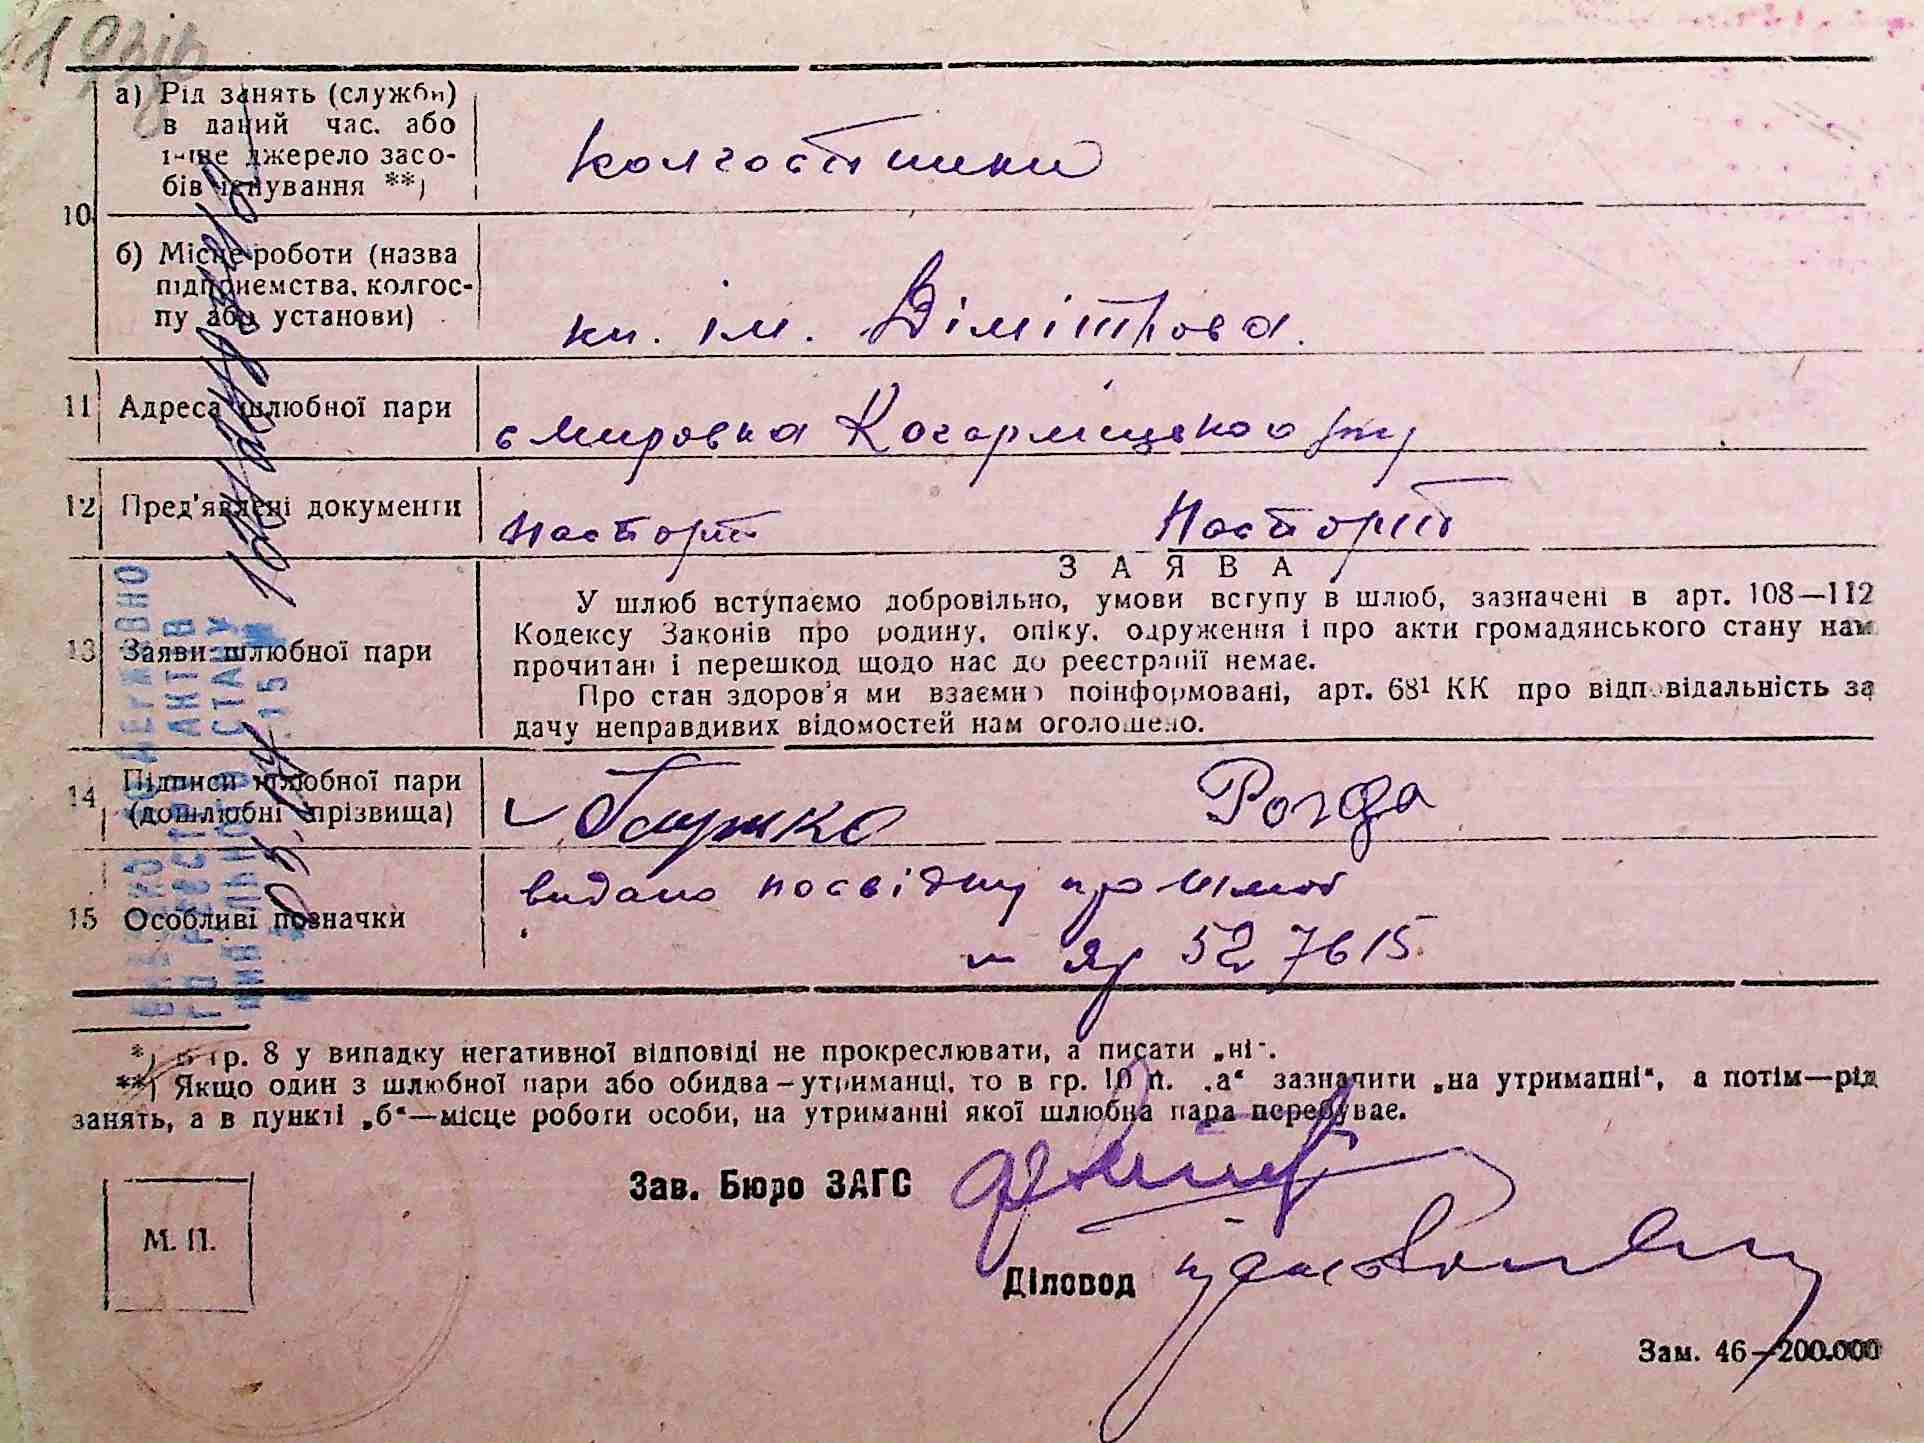 а) Рід занять (служби)
в даний час. або
інше джерело засо-
бів існування **)
колгоспники
10
б) Місце роботи (назва
підприємства, колгос-
пу або установи)
кп. ім. Дімітрова.
11 Адреса шлюбної пари
с Мировка Кагарлицького р-ну
12 Пред'явлені документи
паспорт паспорт
ЗАЯВА
У шлюб вступаємо добровільно, умови вступу в шлюб, зазначені в арт. 108—112
Кодексу Законів про родину, опіку, одруження і про акти громадянського стану нам
13 Заяви шлюбної пари
прочитані і перешкод щодо нас до реєстрації немає.
Про стан здоров'я ми взаємно поінформовані, арт. 68¹ КК про відповідальність за
дачу неправдивих відомостей нам оголошено.
14 Підписи шлюбної пари
(дошлюбні прізвища)
Рогда
видано посвідку про шлюб
15 Особливі позначки
яр 527615.
*) В гр. 8 у випадку негативної відповіді не прокреслювати, а писати „ні".
**) Якщо один з шлюбної пари або обидва–утриманці, то в гр. 10 п. „а“ зазначити „на утриманні“, а потім—рід
занять, а в пункті „б“—місце роботи особи, на утриманні якої шлюбна пара перебуває.
Зав. Бюро ЗАГС
М. П.
Діловод
Зам. 46—200.000